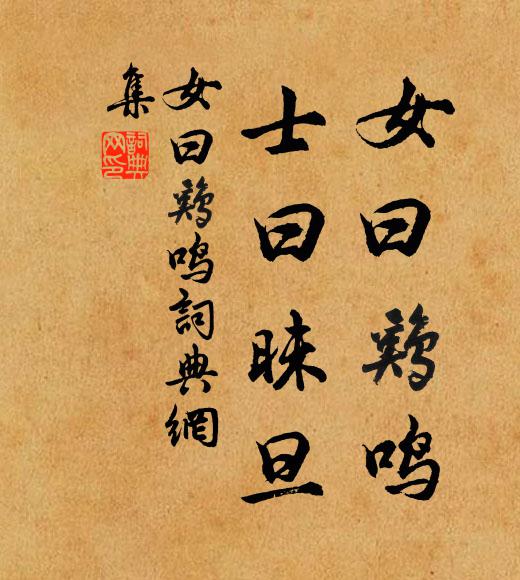 女曰鷄鳴
士曰昧旦
女曰鷄鳴詞典網
集
詞典
网印